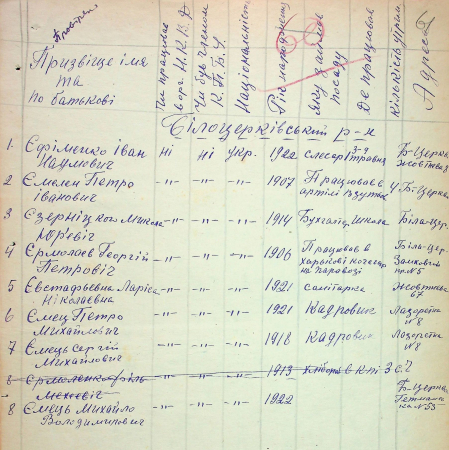 Провірен
Призвіще імя
та
по батькові
Чи працював
в орг. Н.К.В.Д
Чи був членом
К.П.б.У.
Національність
Рік народження
Яку займав
посаду
Де працював
Кількість утрим
Адреса
Білоцерківський р-н
1 Єфіменко Іван Наумович ні ні укр. 1922 слесар Б-Церква
2 Ємелен Петро Іванович -"- -"- -"- 1907 Працював в артілі взуття 4 Б-Церква
3 Єзерніцкого Микола Юрʼєвіч -"- -"- -"- 1914 Бухгалтер Школа Біла-Цер.
4 Єрмолаєв Георгій Петровіч -"- -"- -"- 1906 Працював в харькові кочегар на паровозі Біла-Цер. Замковий пр. N5
5 Євстафьєвна Лариса Ніколаєвна -"- -"- -"- 1921 санітарка Жовтнева 67
6 Ємец Петро Михайлович -"- -"- -"- 1921 Кадровик Лазаретна N 8
7 Ємець Сергій Михайлович -"- -"- -"- 1918 Кадровик Лазаретна N 8
8 Єрмоленко -"- -"- -"- 1913 3
8 Ємець Михайло Володимирович -"- -"- -"- 1922 Б-Церква Гетманська N 55